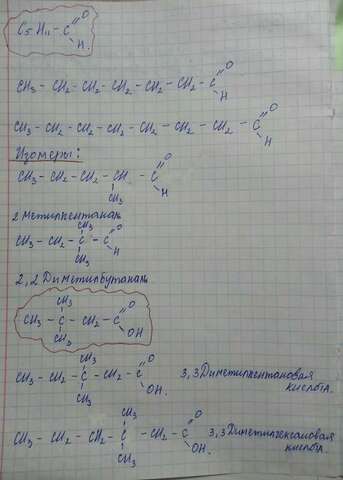 C₅H₁₁ – C =O H.
CH₃ – CH₂ – CH₂ – CH₂ – CH₂ – CH₂ – C =O H
CH₃ – CH₂ – CH₂ – CH₂ – CH₂ – CH₂ – CH₂ – C =O H
Изомеры:
CH₃ – CH₂ – CH₂ – CH – C =O H
CH₃
2 метилпентаналь
CH₃
CH₃ – CH₂ – C – C =O H
CH₃
2,2 Диметилбутаналь
CH₃
CH₃ – C – CH₂ – C =O OH
CH₃
CH₃
CH₃ – CH₂ – C – CH₂ – C =O OH. 3,3 Диметилпентановая
CH₃ кислота.
CH₃
CH₃ – CH₂ – CH₂ – C – CH₂ – C =O OH. 3,3 Диметилгексановая
CH₃ кислота.